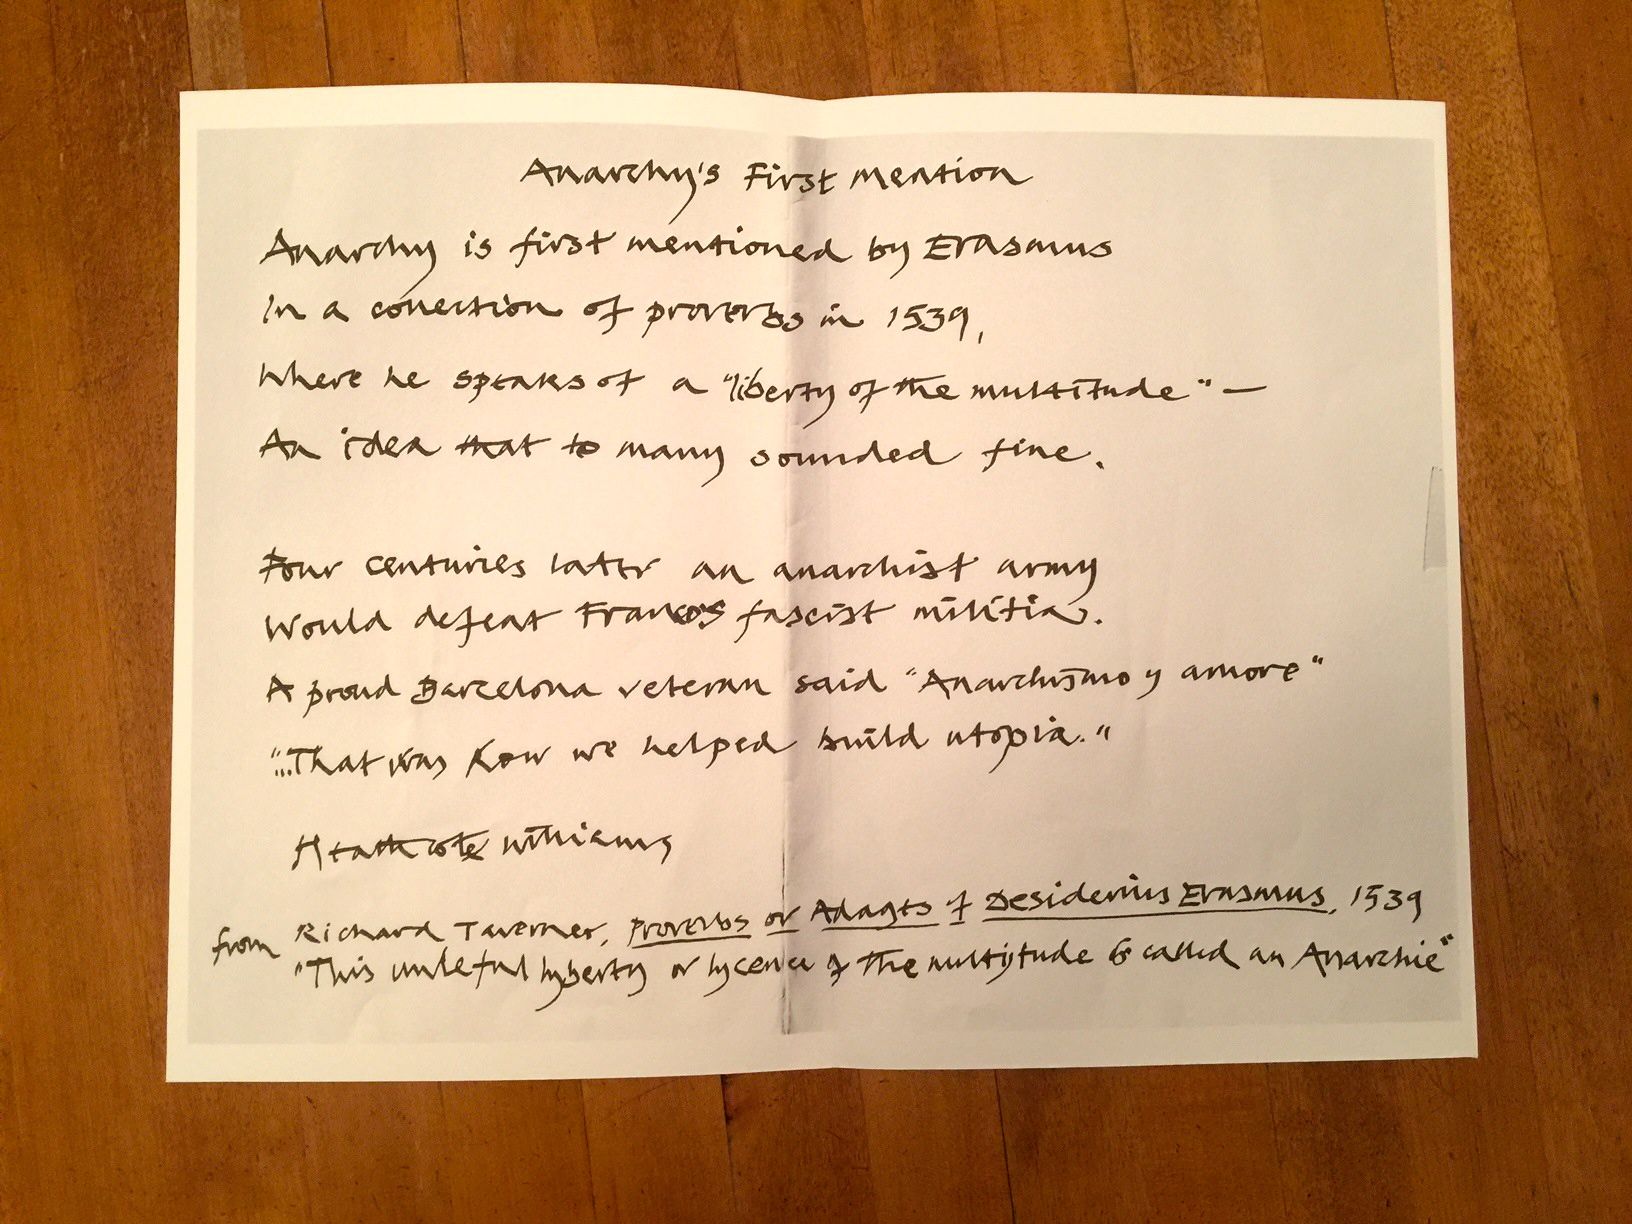 Anarchy's First Mention
Anarchy is first mentioned by Erasmus
In a collection of proverbs in 1539,
Where he speaks of a "liberty of the multitude" —
An idea that to many sounded fine.
Four centuries later an anarchist army
Would defeat Franco's fascist militia.
A proud Barcelona veteran said "Anarchismo y amore"
"...That was how we helped build utopia."
Heathcote Williams
from Richard Taverner, Proverbs or Adages of Desiderius Erasmus, 1539
"This unleful lyberty or lycence of the multytude is called an Anarchie"